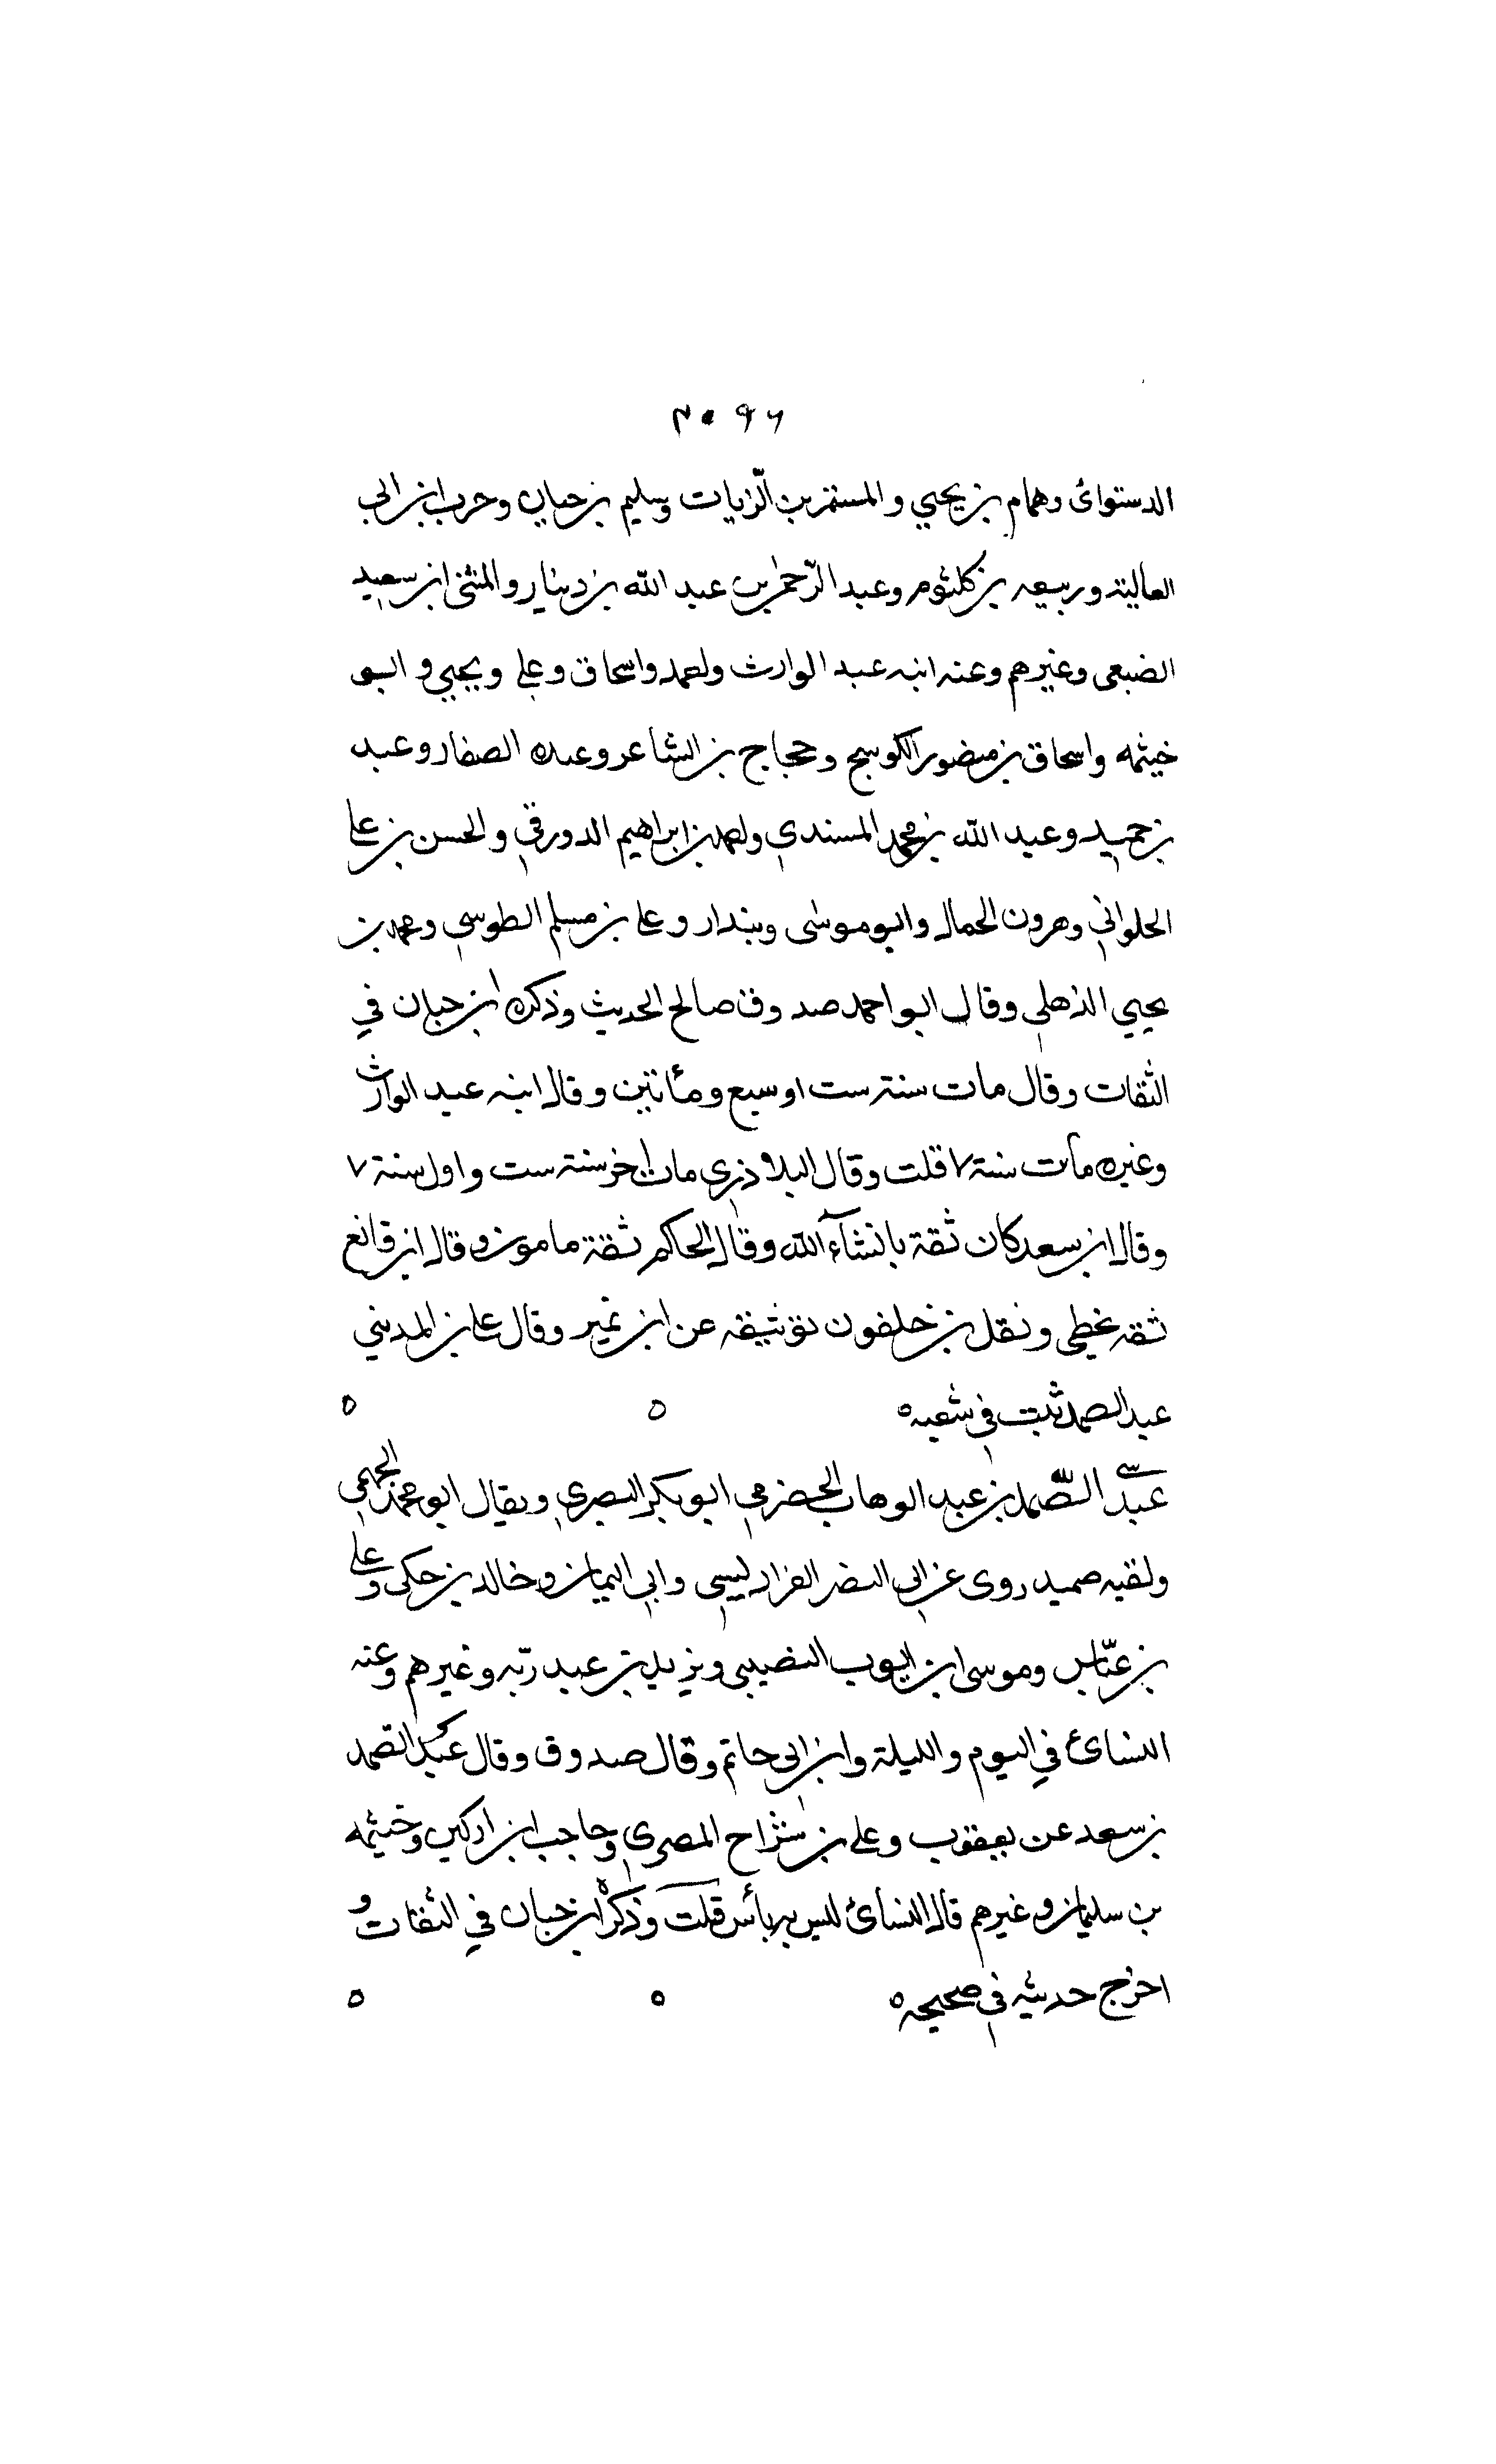 ٢٠٩٦
الدستوائ وهمام بن يحيي والمستمر بن الرّيات وسليم بن حيان وحرب ابن ابى
العالية وربيعه بن كلثوم وعبد الرّحمن بن عبد الله بن دينار والمثنى ابن سعيد
الضبعى وغيرهم وعنه ابنه عبد الوارث واحمد واسحاق وعلي ويحيي وابو
خيثمه واسحاق بن منصور الكوسج وحجاج بن الشاعر وعبده الصفار وعبد
بن حميد وعبد الله بن محمد المسندي واحمد بن ابراهيم الدورقي والحسن بن علي
الحلواني وهرون الحمال وابو موسى وبندار وعلي بن مسلم الطوسي ومحمد بن
يحيي الذهلي وقال ابو احمد صدوق صالح الحديث وذكره ابن حبان في
الثقات وقال مات سنة ست او سبع ومأتين وقال ابنه عبد الوارث
وغيره مات سنة ٧ قلت وقال البلاذري مات اخر سنة ست واول سنة ٧
وقال ابن سعد كان ثقة بانشآء الله وقال الحاكم ثقة مامون وقال ابن قانع
ثقه يخطى ونقل بن خلفون توثيقه عن ابن نمير وقال علي بن المديني
عبد الصمد ثبت في شعبه ٥ ٥ ٥
سي عبد الصّمد بن عبد الوهاب الحضرمي ابو بكر النصري ويقال ابو محمد الجهمي
ولقبه صميد روى عن ابى النضر الفراديسي وابي اليمان وخالد بن حكى وعلي
بن عيّاس وموسى ابن ايوب النصيبى ويزيد بن عبد ربّه وغيرهم وعنه
النسائ في اليوم والليلة وابن ابى حاتم وقال صدوق وقال عبد الصّمد
بن سعد عن يعقوب وعلي بن سراح المصري وحاجب ابن اركين وخيثمه
بن سليمان وغيرهم قال النسائ ليس به بأس قلت وذكره ابن حبان في الثقات و
اخرج حديثه في صحيحه ٥ ٥ ٥